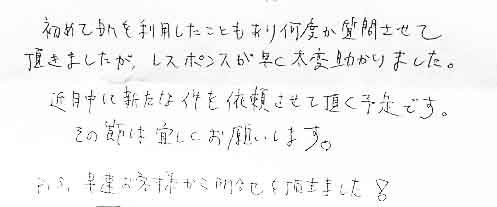 初めて を利用したこともあり何度か質問させて
頂きましたが、レスポンスが早く大変助かりました。
近日中に新たな件を依頼させて頂く予定です。
その節は宜しくお願いします。
P.S. 早速お客様から問合せを頂きました